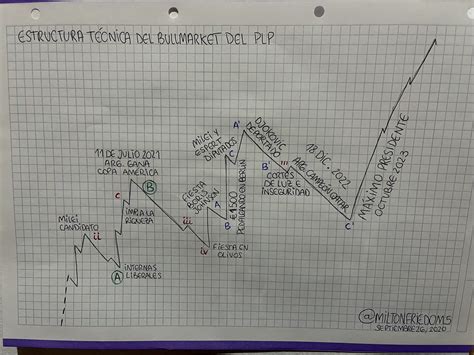 ESTRUCTURA TÉCNICA DEL BULLMARKET DEL PLP
MILEI
CANDIDATO
ii
A
INTERNAS
LIBERALES
c
11 DE JULIO 2021
ARG. GANA
COPA AMERICA
B
IMP. A LA
RIQUEZA
iii
iv
FIESTA EN
OLIVOS
FIESTA
BORIS
JOHNSON
A
B
€1500
PEDALEANDO EN BERLIN
MILEI Y
ESPERT
DIPUTADOS
C
A'
DJOKOVIC
DEPORTADO
B'
iii
CORTES
DE LUZ E
INSEGURIDAD
18 DIC. 2022
ARG. CAMPEON QATAR
C'
MÁXIMO PRESIDENTE
OCTUBRE 2023
@MILTONFRIEDOM5
SEPTIEMBRE 26, 2020